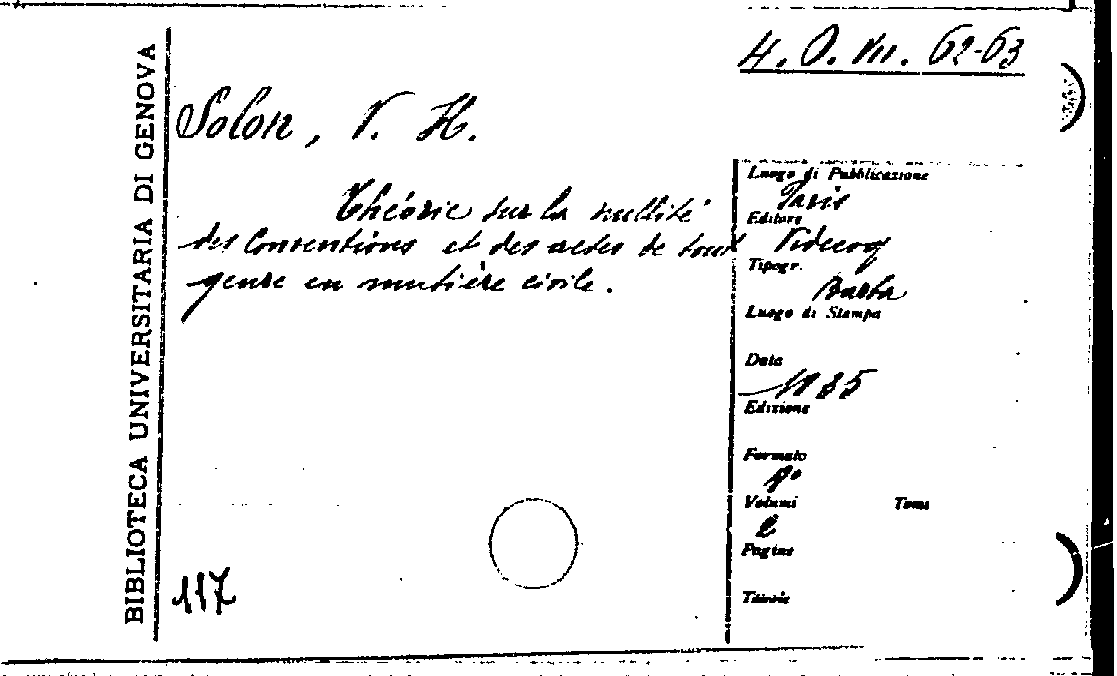 4. O. VII. 62-63
BIBLIOTECA UNIVERSITARIA DI GENOVA
Solon, V. H.
Théorie sur la nullité
des Conventions et des actes de tout
genre en matière civile.
117
Luogo di Pubblicazione
Paris
Editore
Videcoq
Tipogr.
Barba
Luogo di Stampa
Data
1835
Edizione
Formato
8°
Volumi Tomi
2
Pagine